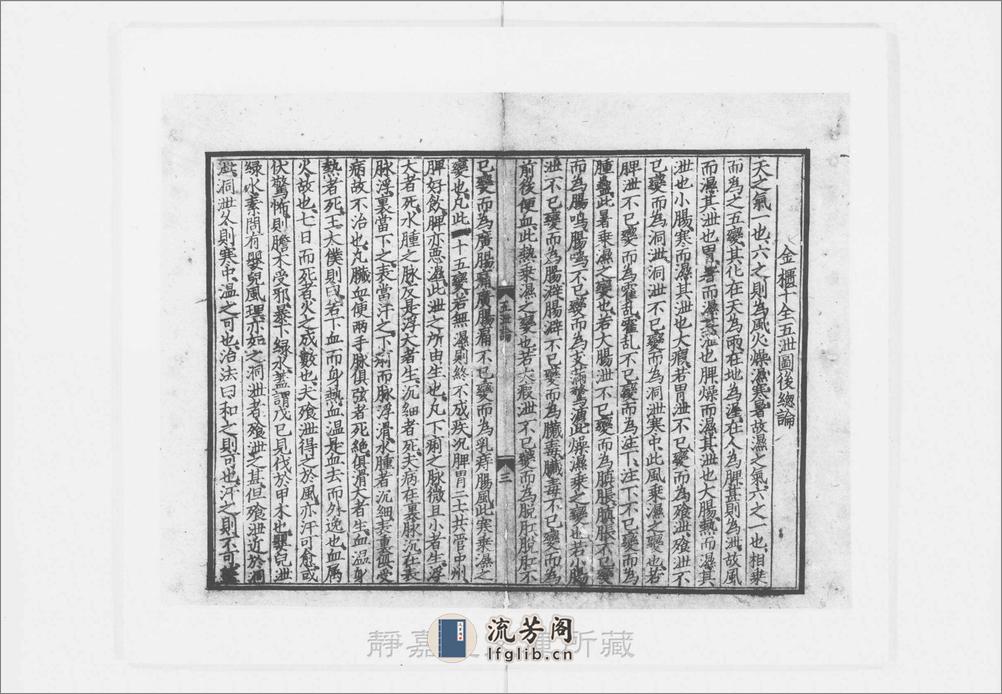 金櫃十全五泄圖後總論
天之氣一也六之則為風火燥濕寒暑故濕之氣六之一也相乗
而為之五變其化在天為雨在地為濕在人為脾甚則為泄故風
而濕其泄也胃暑而濕其泄也脾燥而濕其泄也大腸熱而濕其
泄也小腸寒而濕其泄也大瘕若胃泄不已變而為飱泄飱泄不
已變而為洞泄洞泄不已變而為洞泄寒中此風乗濕之變也若
脾泄不已變而為霍乱霍乱不已變而為注下注下不已變而為
腫蠱此暑乗濕之變也若大腸泄不已變而為䐜脹䐜脹不已變
而為腸鳴腸鳴不已變而為支滿鶩溏此燥濕乗之變也若小腸
泄不已變而為腸澼腸澼不已變而為臟毒臟毒不已變而為
前後便血此熱乗濕之變也若大瘕泄不已變而為脱肛脱肛不
已變而為廣腸痛廣腸痛不已變而為乳痔腸風此寒乗濕之
變也凡此二十五變若無濕則終不成疾况脾胃二土共管中州
脾好飲脾亦惡濕此泄之所由生也凡下痢之脉微且小者生浮
大者死水腫之脉反是浮大者生沉細者死夫病在裏脉沉在表
脉浮裏當下之表當汗之下痢而脉浮滑水腫者沉細表裏俱受
病故不治也凡臟血便兩手脉俱弦者死絶俱滑大者生血温身
熱者死王太僕則曰若下血而身熱血温是血去而外逸也血属
火故也七日而死者火之成數也夫飱泄得之於風亦汗可愈或
伏驚怖則膽木受邪暴下緑水蓋謂戊已見伐於甲木也嬰兒泄
緑水素問有嬰兒風理亦如之洞泄者飱泄之甚但飱泄近於洞
泄洞泄久則寒中温之可也治法曰和之則可也汗之則不可
五泄論
三
流芳阁
lfglib.cn
靜嘉 所藏